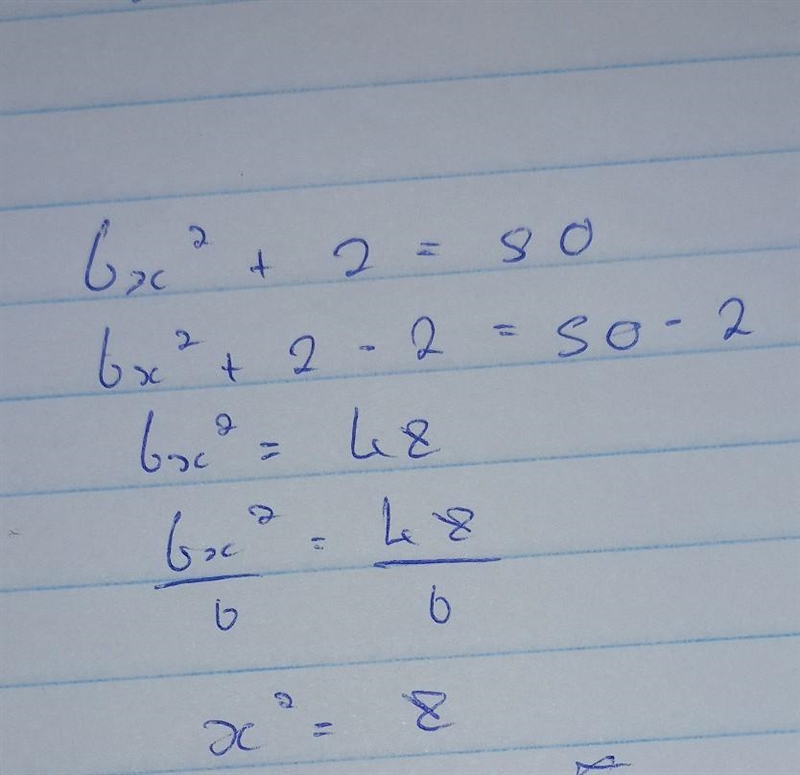 6x² + 2 = 50
6x² + 2 - 2 = 50 - 2
6x² = 48
6x²/6 = 48/6
x² = 8